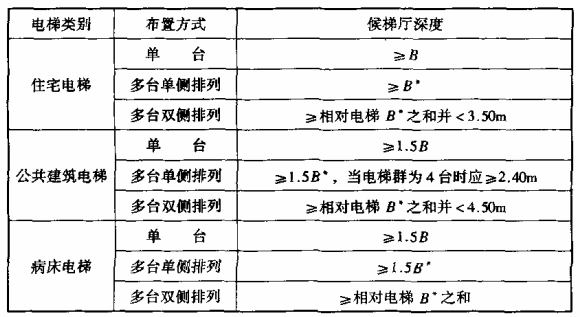 电梯类别 布置方式 候梯厅深度
单 台 ≥B
住宅电梯 多台单侧排列 ≥B*
多台双侧排列 ≥相对电梯 B*之和并<3.50m
单 台 ≥1.5B
公共建筑电梯 多台单侧排列 ≥1.5B*，当电梯群为4台时应≥2.40m
多台双侧排列 ≥相对电梯 B*之和并<4.50m
单 台 ≥1.5B
病床电梯 多台单侧排列 ≥1.5B*
多台双侧排列 ≥相对电梯 B*之和